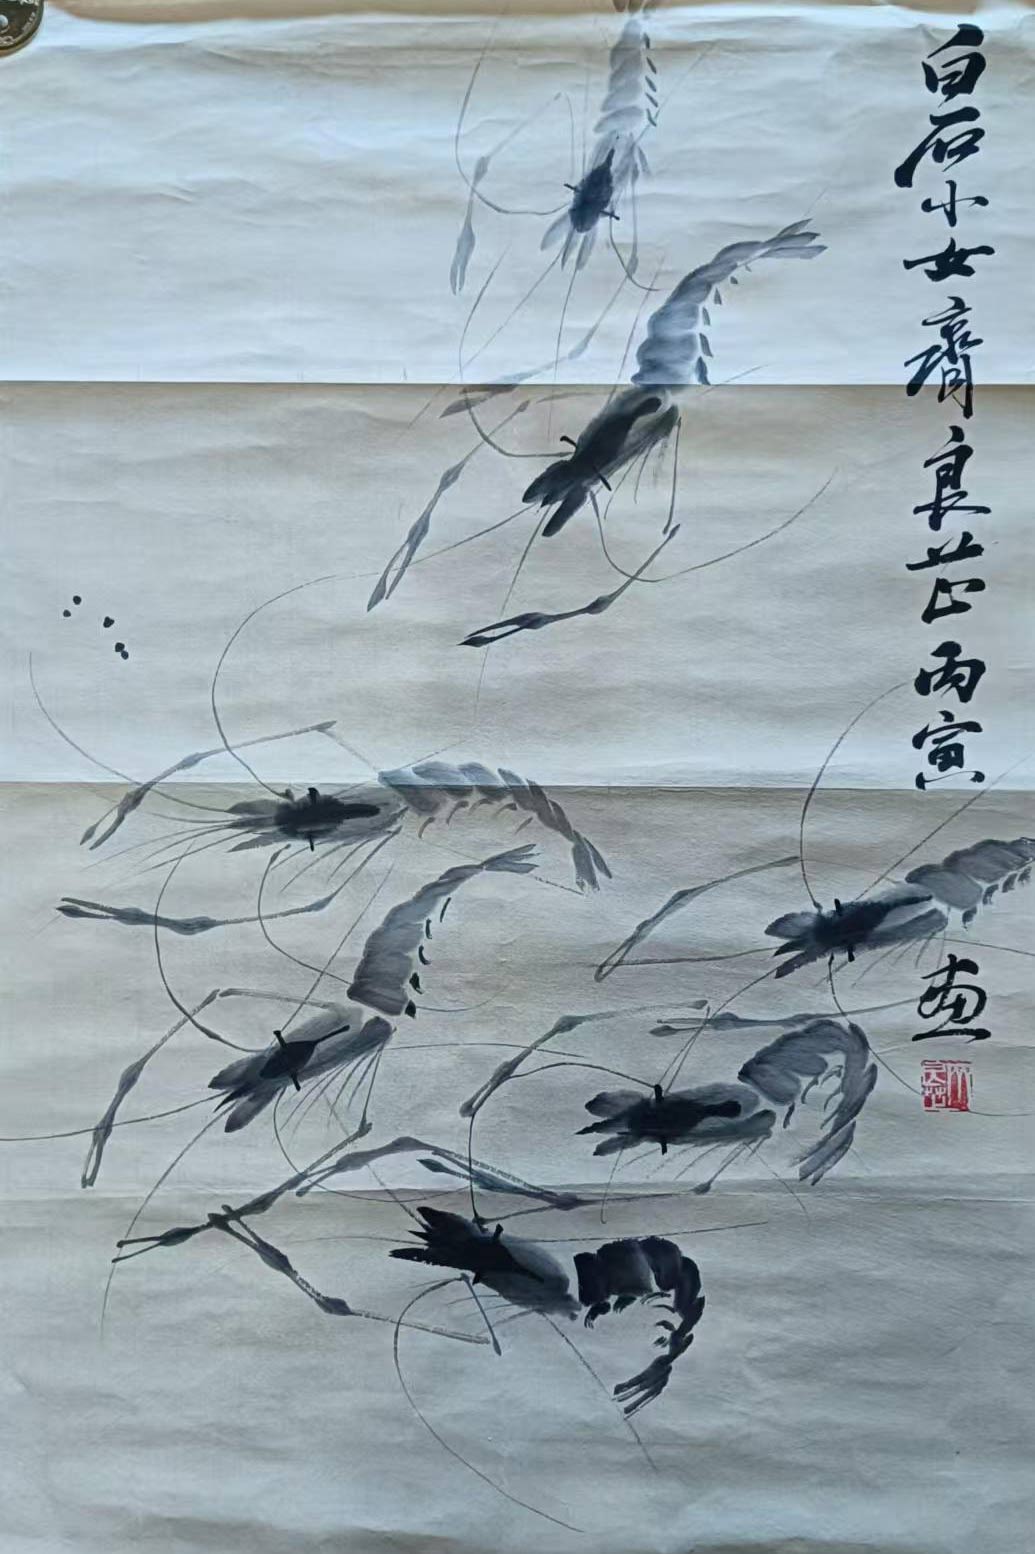 白石小女齊良芷丙寅畫